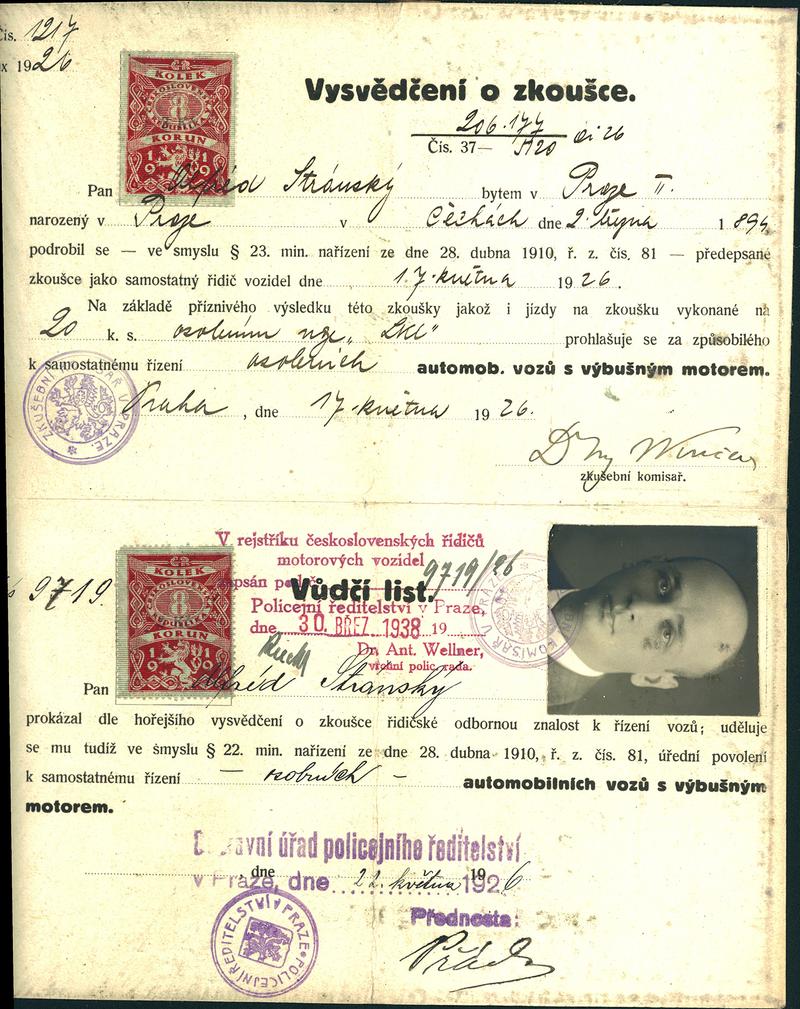 čís. 1217
x 1926
ČR
KOLEK
ČESKOSLOVENSKÁ
8
REPUBLIKA
KORUN
19 19
Vysvědčení o zkoušce.
206.177
Čís. 37— 1120 ai 26
Pan Alfréd Stránský bytem v Praze II.
narozený v Praze v Čechách dne 2. 1894
podrobil se — ve smyslu § 23. min. nařízení ze dne 28. dubna 1910, ř. z. čís. 81 — předepsané
zkoušce jako samostatný řidič vozidel dne 17. května 1926.
Na základě příznivého výsledku této zkoušky jakož i jízdy na zkoušku vykonané na
20 k. s. osobním prohlašuje se za způsobilého
k samostatnému řízení osobních automob. vozů s výbušným motorem.
Praha, dne 17. května 1926.
ZKUŠEBNÍ KOMISAŘ V PRAZE.
Dr Ing
zkušební komisař.
V rejstříku československých řidičů
motorových vozidel
zapsán pod č. 9719/26
9719.
Vůdčí list.
Policejní ředitelství v Praze,
dne 30. BŘEZ. 1938 19
Dr. Ant. Wellner,
vrchní polic. rada.
KOMISAŘ V PRAZE
ČR
KOLEK
ČESKOSLOVENSKÁ
8
REPUBLIKA
KORUN
19 19
Pan Alfréd Stránský
prokázal dle hořejšího vysvědčení o zkoušce řidičské odbornou znalost k řízení vozů; uděluje
se mu tudíž ve smyslu § 22. min. nařízení ze dne 28. dubna 1910, ř. z. čís. 81, úřední povolení
k samostatnému řízení — osobních — automobilních vozů s výbušným
motorem.
Dopravní úřad policejního ředitelství
, dne 19
v Praze, dne 22. května 1926
Přednosta:
POLICEJNÍ ŘEDITELSTVÍ V PRAZE